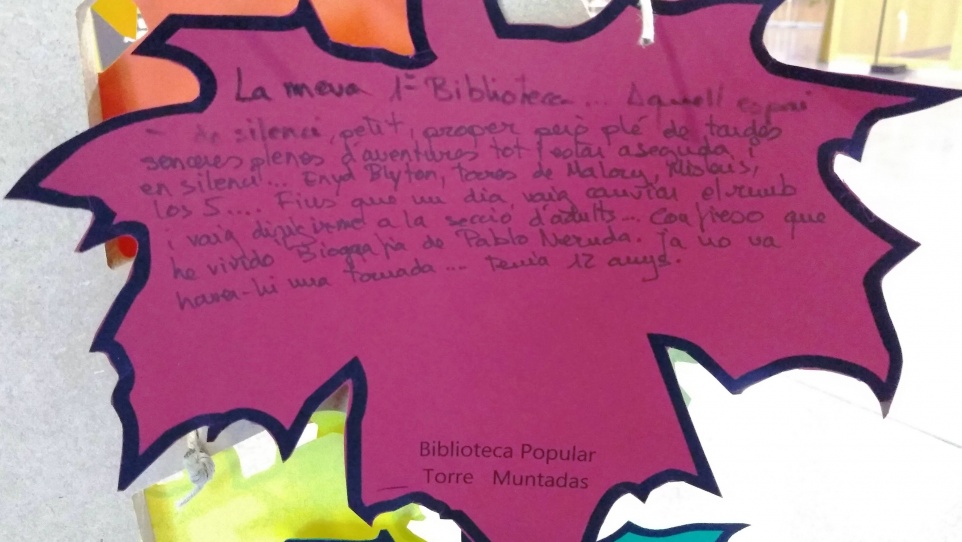 La meva 1ª Biblioteca... Aquell espai
- de silenci, petit, proper però plé de tardes
senceres plenes d'aventures tot i estar asseguda i
en silenci... Enyd Blyton, torres de Malory, Misteris,
los 5.... Fins que un dia, vaig canviar el rumb
i vaig dirigirme a la secció d'adults... Confieso que
he vivido Biografia de Pablo Neruda. Ja no va
haver-hi una tornada... tenia 12 anys.
Biblioteca Popular
Torre Muntadas